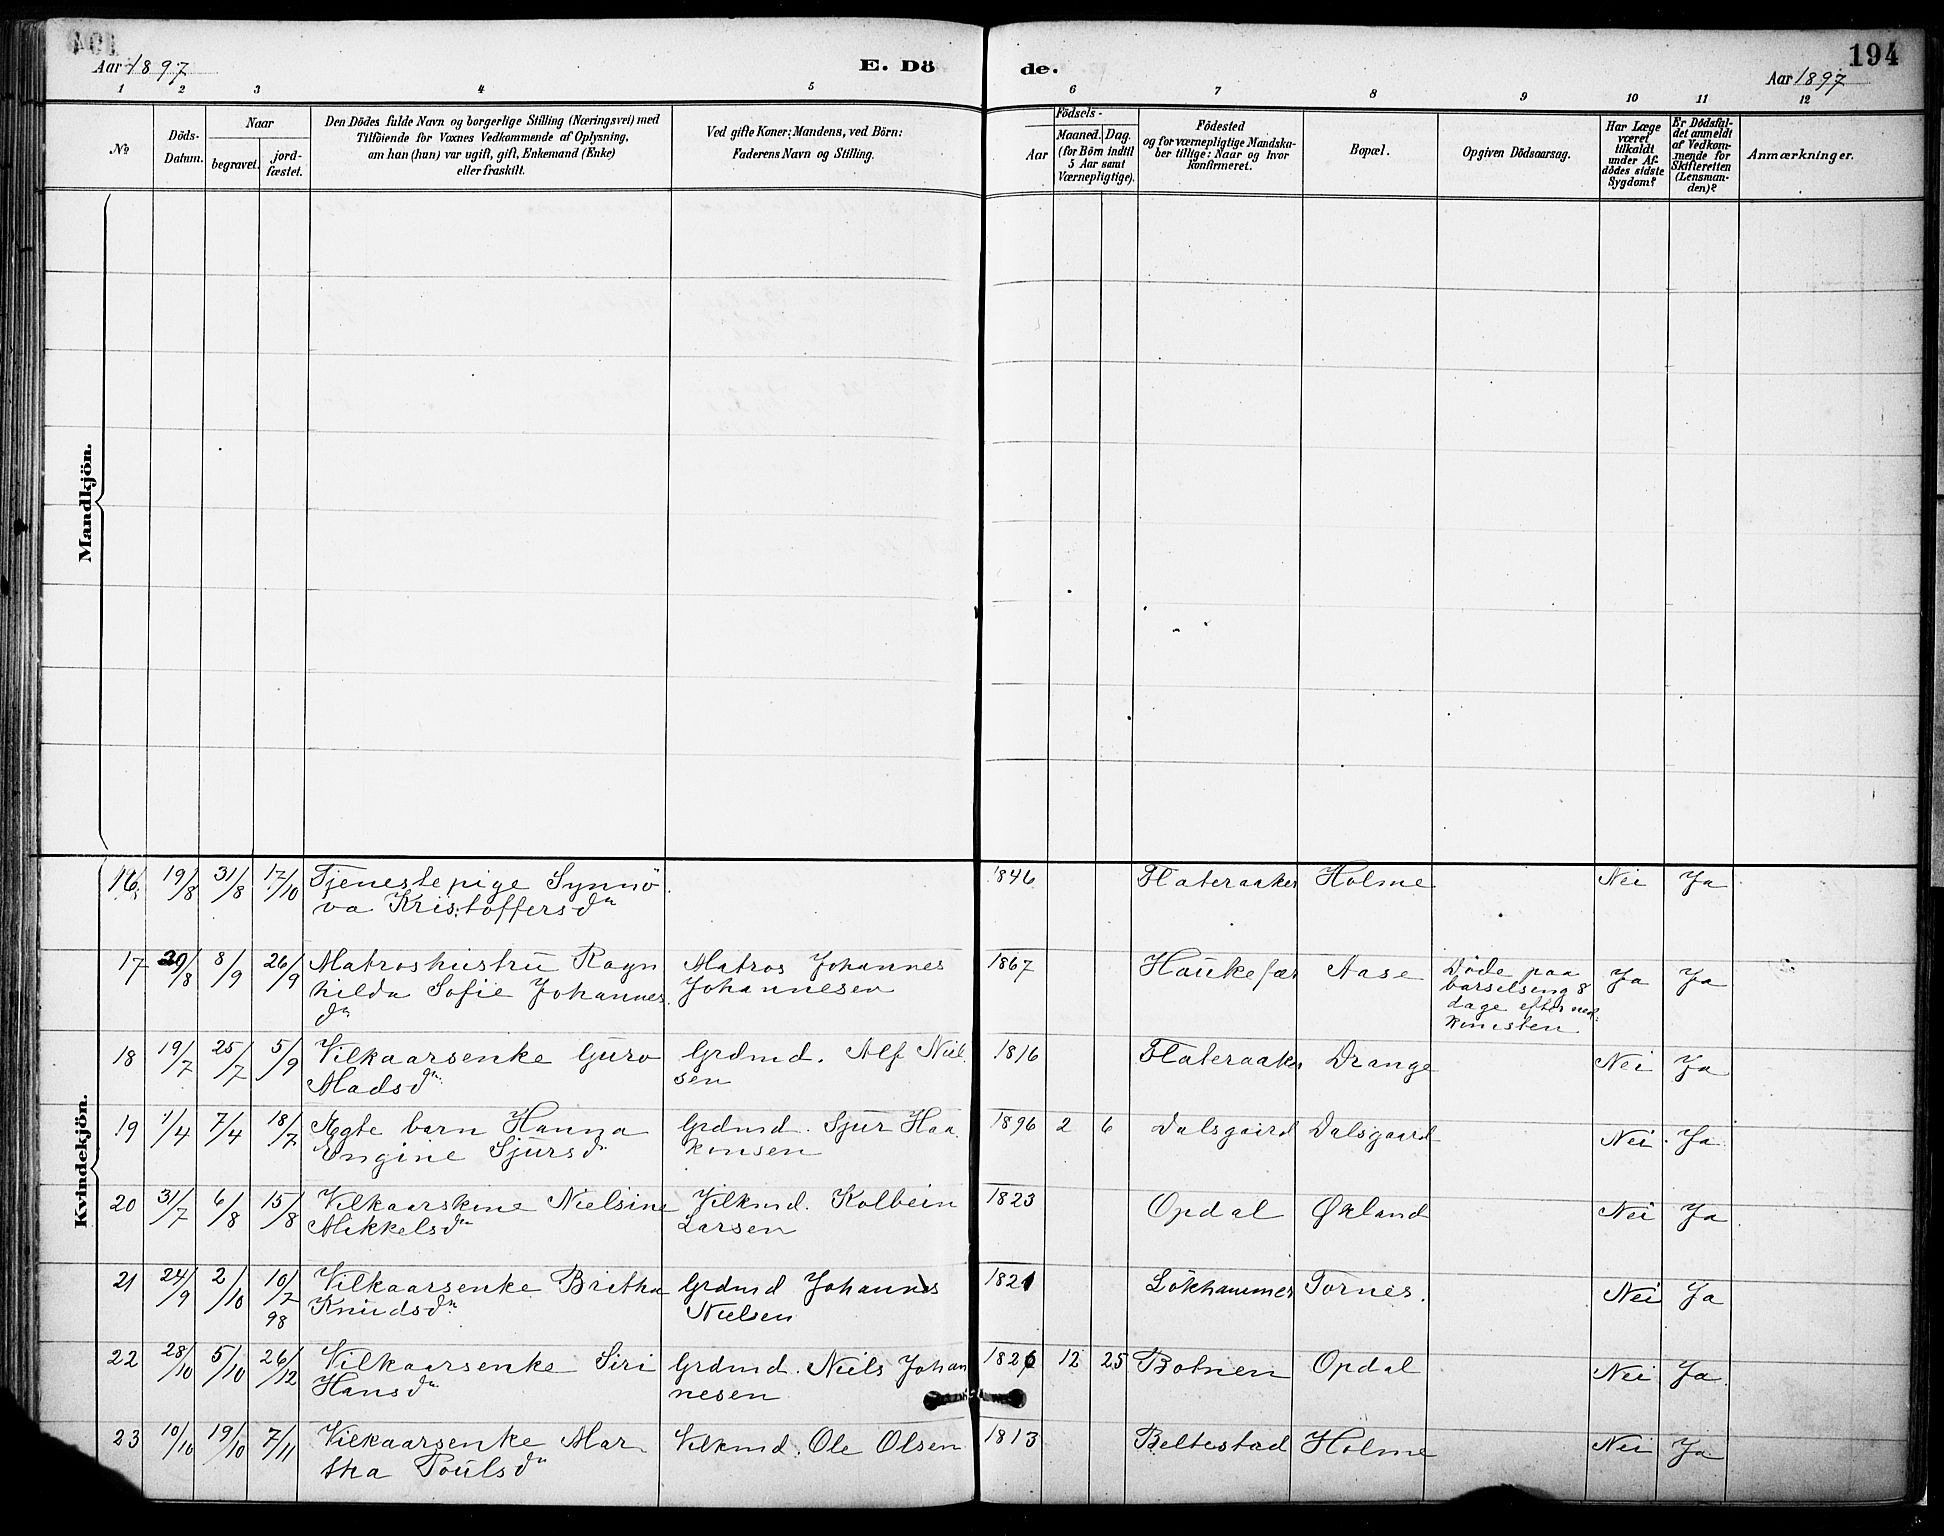 194
Aar 1897
E. Dö
de.
Aar 1897
1 2 3 4 5 6 7 8 9 10 11 12
№
Döds-
Datum.
Naar
begravet.
jord-
fæstet.
Den Dödes fulde Navn og borgerlige Stilling (Næringsvei) med
Tilföiende for Voxnes Vedkommende af Oplysning,
om han (hun) var ugift, gift, Enkemand (Enke)
eller fraskilt.
Ved gifte Koner: Mandens, ved Börn:
Faderens Navn og Stilling.
Födsels-
Aar
Maaned. Dag.
(for Börn indtil
5 Aar samt
Værnepligtige).
Födested
og for værnepligtige Mandska-
ber tillige: Naar og hvor
konfirmeret.
Bopæl.
Opgiven Dödsaarsag.
Har Læge
været
tilkaldt
under Af-
dödes sidste
Sygdom?
Er Dödsfal-
det anmeldt
af Vedkom-
mende for
Skifteretten
(Lensman-
den)?
Anmærkninger.
Mandkjön.
Kvindekjön.
16. 19/8 31/8 17/10 Tjenestepige Synnö 1846 Flateraaker Holme Nei Ja
va Kristoffersdn
17 30/8 8/9 26/9 Matroshustru Ragn Matros Johannes 1867 Haukefær Aase Döde paa Ja Ja
hilda Sofie Johannes Johannesen barselseng 8
dn dage efter ned-
komsten
18 19/7 25/7 5/9 Vilkaarsenke Guro Grdmd. Alf Niel 1816 Flateraaker Drange Nei Ja
Madsdn sen
19 1/4 7/4 18/7 Ægte barn Hanna Grdmd. Sjur Haa 1896 2 6 Dalsgaard Dalsgaard Nei Ja
Engine Sjursdn konsen
20 31/7 6/8 15/8 Vilkaarskone Nielsine Vilkmd. Kolbein 1823 Opdal Økland Nei Ja
Mikkelsdn Larsen
21 24/9 2/10 10/7 98 Vilkaarsenke Britha Grdmd Johannes 1821 Lökhammer Tornes. Nei Ja
Knudsdn Nielsen
22 28/10 5/10 26/12 Vilkaarsenke Siri Grdmd. Niels Johan 1826 12 25 Botnen Opdal Nei Ja
Hansdn nesen
23 10/10 19/10 7/11 Vilkaarsenke Mar Vilkmd. Ole Olsen 1813 Beltestad Holme Nei Ja
tha Poulsdn